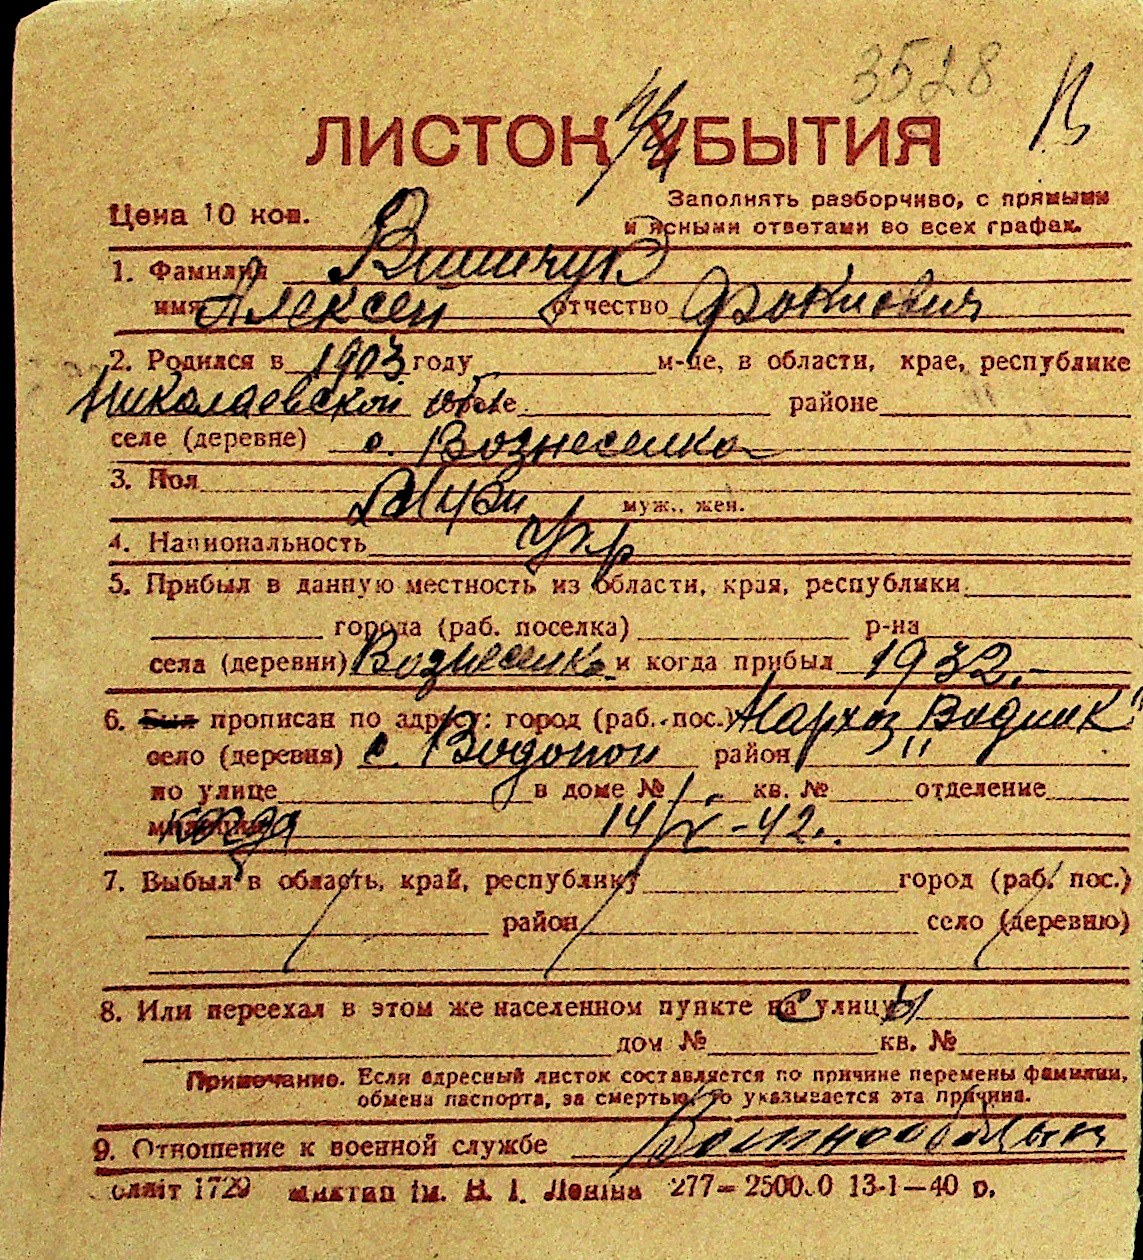 3528
ЛИСТОК УБЫТИЯ
Цена 10 коп.
Заполнять разборчиво, с прямыми
и ясными ответами во всех графах.
1. Фамилия Винничук
имя Алексей отчество Фокиевич
2. Родился в 1903 году м-це, в области, крае, республике
Николаевской обл. районе
селе (деревне) с. Вознесенка
3. Пол муж., жен.
4. Национальность укр
5. Прибыл в данную местность из области, края, республики
города (раб. поселка) р-на
села (деревни) Вознесенка и когда прибыл 1932.
6. Был прописан по адресу: город (раб. пос.) Мархоз „Водник"
село (деревня) с. Водопой район
по улице в доме № кв. № отделение
милиции когда 14/X-42.
7. Выбыл в область, край, республику город (раб. пос.)
район село (деревню)
8. Или переехал в этом же населенном пункте на улицу
дом № кв. №
Примечание. Если адресный листок составляется по причине перемены фамилии,
обмена паспорта, за смертью, то указывается эта причина.
9. Отношение к военной службе Военнообязан
1729 ім. В. І. Леніна 277— 13-1—40 р.